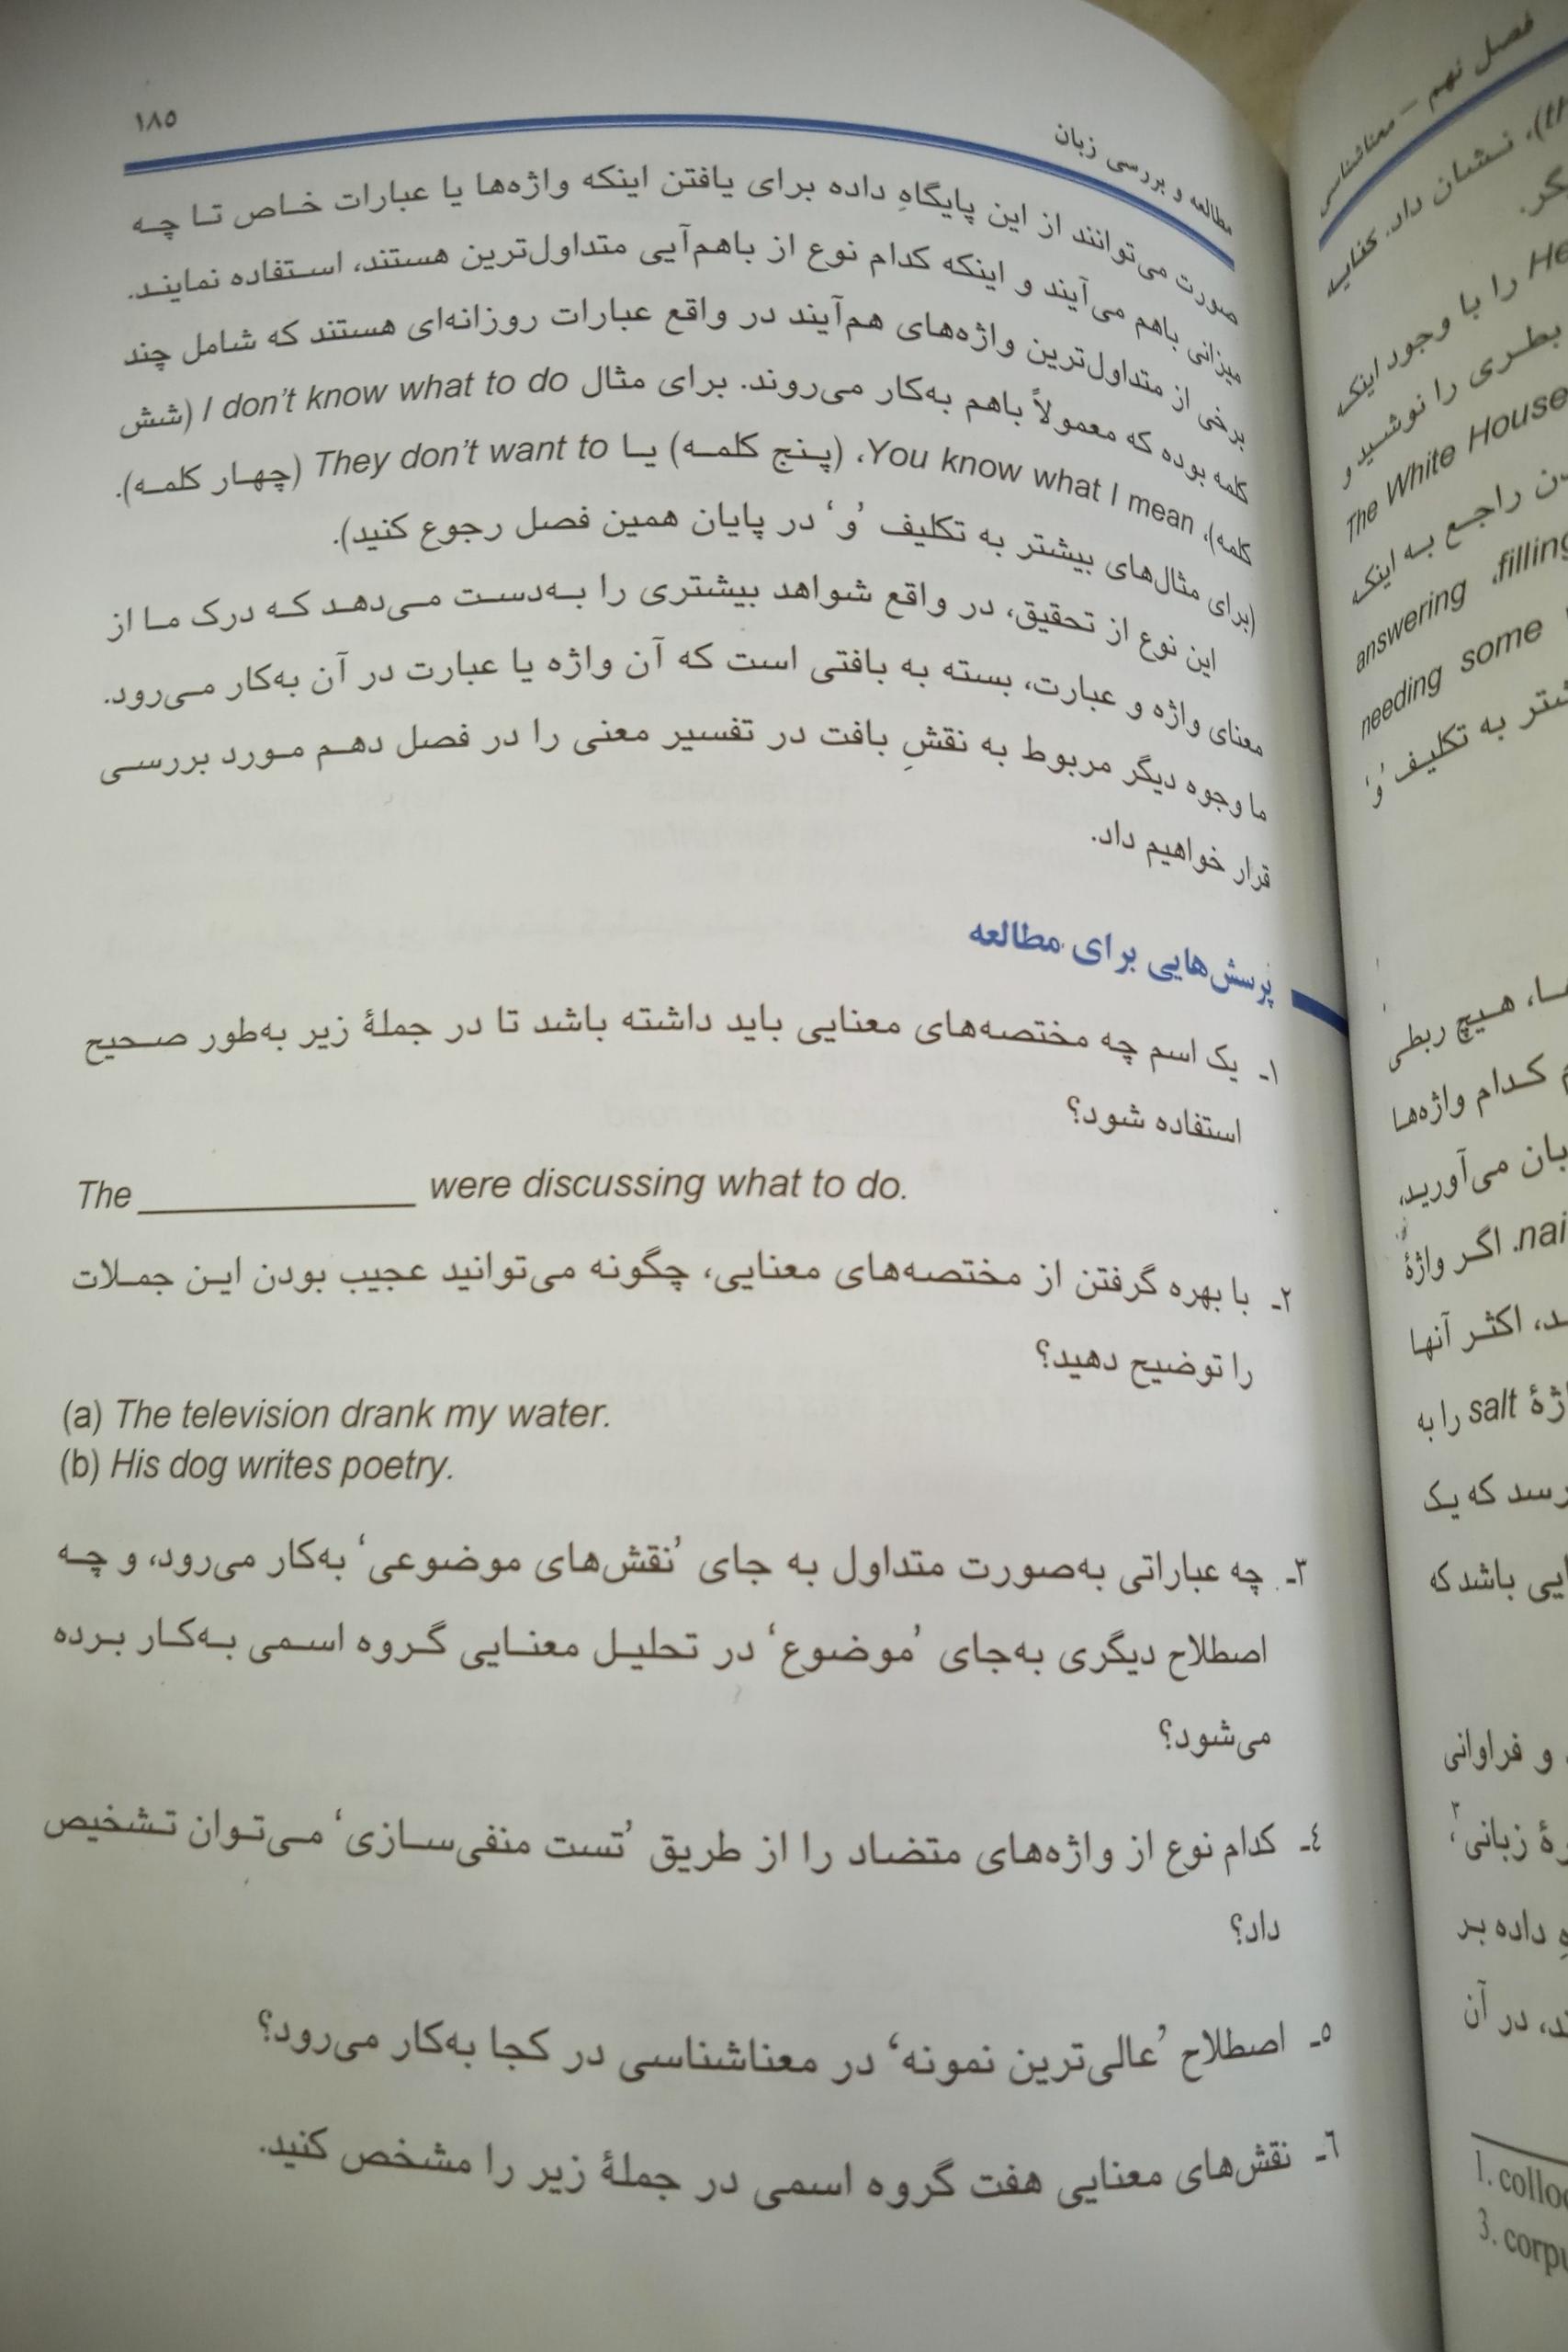 ١٨٥
مطالعه و بررسی زبان
صورت می‌توانند از این پایگاهِ داده برای یافتن اینکه واژه‌ها یا عبارات خاص تا چه
میزانی باهم می‌آیند و اینکه کدام نوع از باهم‌آیی متداول‌ترین هستند، استفاده نمایند.
برخی از متداول‌ترین واژه‌های هم‌آیند در واقع عبارات روزانه‌ای هستند که شامل چند
کلمه بوده که معمولاً باهم به‌کار می‌روند. برای مثال I don't know what to do (شش
کلمه)، You know what I mean، (پنج کلمه) یا They don't want to (چهار کلمه).
(برای مثال‌های بیشتر به تکلیف ’و‘ در پایان همین فصل رجوع کنید).
این نوع از تحقیق، در واقع شواهد بیشتری را به‌دست می‌دهد که درک ما از
معنای واژه و عبارت، بسته به بافتی است که آن واژه یا عبارت در آن به‌کار می‌رود.
ما وجوه دیگر مربوط به نقشِ بافت در تفسیر معنی را در فصل دهم مورد بررسی
قرار خواهیم داد.
پرسش‌هایی برای مطالعه
١ـ یک اسم چه مختصه‌های معنایی باید داشته باشد تا در جملهٔ زیر به‌طور صحیح
استفاده شود؟
The ______________ were discussing what to do.
٢ـ با بهره گرفتن از مختصه‌های معنایی، چگونه می‌توانید عجیب بودن این جملات
را توضیح دهید؟
(a) The television drank my water.
(b) His dog writes poetry.
٣ـ چه عباراتی به‌صورت متداول به جای ’نقش‌های موضوعی‘ به‌کار می‌رود، و چه
اصطلاح دیگری به‌جای ’موضوع‘ در تحلیل معنایی گروه اسمی به‌کار برده
می‌شود؟
٤ـ کدام نوع از واژه‌های متضاد را از طریق ’تست منفی‌سازی‘ می‌توان تشخیص
داد؟
٥ـ اصطلاح ’عالی‌ترین نمونه‘ در معناشناسی در کجا به‌کار می‌رود؟
٦ـ نقش‌های معنایی هفت گروه اسمی در جملهٔ زیر را مشخص کنید.
فصل نهم – معناشناسی
نشان داد. کنایه
He را با وجود اینکه
بطری را نوشید و
The White House
راجع به اینکه
answering ،filling
needing some
به تکلیف ’و‘
هیچ ربطی
کدام واژه‌ها
می‌آورید،
اگر واژهٔ
اکثر آنها
salt را به
که یک
باشد که
و فراوانی
زبانی٣،
داده بر
در آن
1.
3.